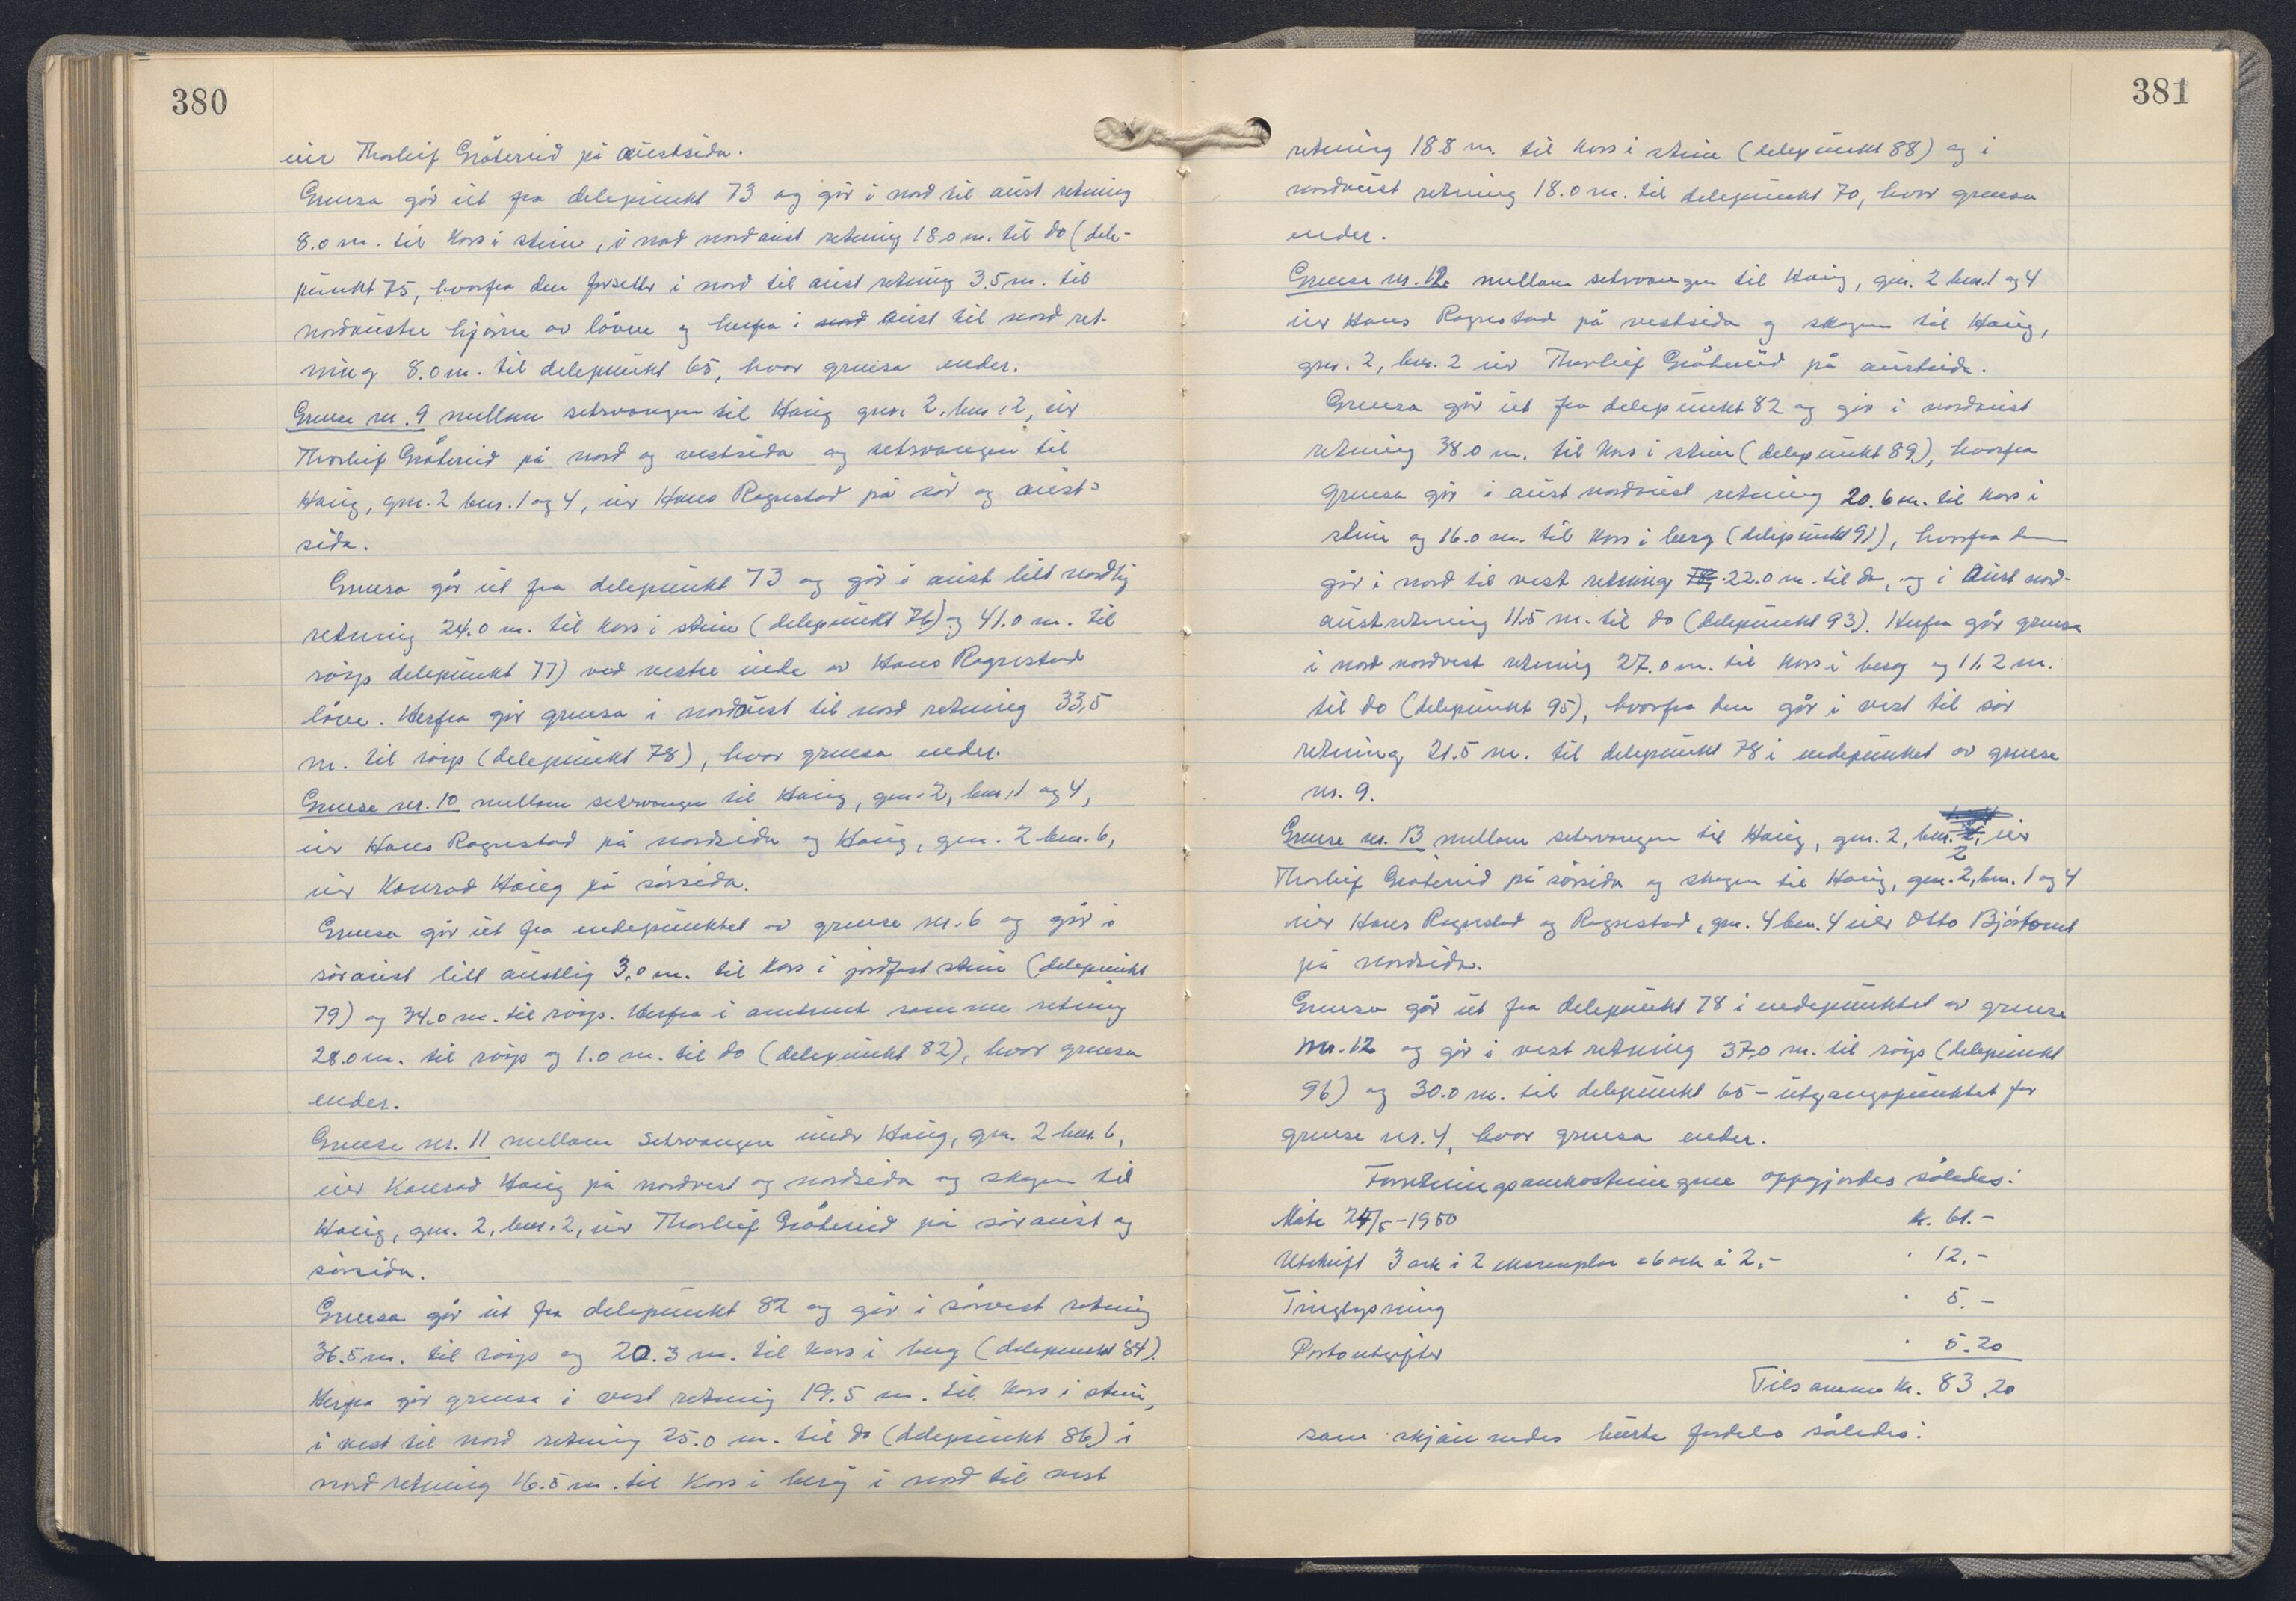 380
eier Thorleif Gråterud på austsida.
Grensa går ut fra delepunkt 73 og går i nord til aust retning
8.0 m. til kors i stein, i nord nordaust retning 18.0 m. til do (dele-
punkt 75, hvorfra den forsetter i nord til aust retning 3.5 m. til
nordaustre hjørne av løven og herfra i nord aust til nord ret-
ning 8.0 m. til delepunkt 65, hvor grensa ender.
Grense nr. 9 mellom setervangen til Haug gnr. 2, bnr. 2, eier
Thorleif Gråterud på nord og vestsida og setrvangen til
Haug, gnr. 2 bnr. 1 og 4, eier Hans Rognstad på sør og aust-
sida.
Grensa går ut fra delepunkt 73 og går i aust litt nordlig
retning 24.0 m. til kors i stein (delepunkt 76) og 41.0 m. til
røys delepunkt 77) ved vestre ende av Hans Rognstad
løve. Herfra går grensa i nordaust til nord retning 33,5
m. til røys (delepunkt 78), hvor grensa ender.
Grense nr. 10 mellom setervangen til Haug, gnr. 2, bnr. 1 og 4,
eier Hans Rognstad på nordsida og Haug, gnr. 2 bnr. 6,
eier Konrad Haug på sørsida.
Grensa går ut fra endepunktet av grense nr. 6 og går i
søraust litt austlig 3.0 m. til kors i jordfast stein (delepunkt
79) og 34.0 m. til røys. Herfra i omtrent samme retning
28.0 m. til røys og 1.0 m. til do (delepunkt 82), hvor grensa
ender.
Grense nr. 11 mellom Setrvangen under Haug, gnr. 2 bnr. 6,
eier Konrad Haug på nordvest og nordsida og skogen til
Haug, gnr. 2, bnr. 2, eier Thorleif Gråterud på søraust og
sørsida.
Grensa går ut fra delepunkt 82 og går i sørvest retning
36.5 m. til røys og 20.3 m. til kors i berg (delepunkt 84).
Herfra går grensa i vest retning 19.5 m. til kors i stein,
i vest til nord retning 25.0 m. til do (delepunkt 86) i
nord retning 16.5 m. til kors i berg i nord til vest
381
retning 18.8 m. til kors i stein (delepunkt 88) og i
nordaust retning 18.0 m. til delepunkt 70, hvor grensa
ender.
Grense nr. 12. mellom setrvangen til Haug, gnr. 2 bnr. 1 og 4
eier Hans Rognstad på vestsida og skogen til Haug,
gnr. 2, bnr. 2 eier Thorleif Gråterud på austsida.
Grensa går ut fra delepunkt 82 og går i nordaust
retning 38.0 m. til kors i stein (delepunkt 89), hvorfra
grensa går i aust nordaust retning 20.6 m. til kors i
stein og 16.0 m. til kors i berg (delepunkt 91), hvorfra den
går i nord til vest retning 22.0 m. til do, og i aust nord-
aust retning 11.5 m. til do (delepunkt 93). Herfra går grensa
i nord nordvest retning 27.0 m. til kors i berg og 11.2 m.
til do (delepunkt 95), hvorfra den går i vest til sør
retning 21.5 m. til delepunkt 78 i endepunktet av grense
nr. 9.
Grense nr. 13 mellom setervangen til Haug, gnr. 2, bnr. 2, eier
Thorleif Gråterud på sørsida og skogen til Haug, gnr. 2, bnr. 1 og 4
eier Hans Rognstad og Rognstad, gnr. 4 bnr. 4 eier Otto Bjørtomt
på nordsida.
Grensa går ut fra delepunkt 78 i endepunktet av grense
nr. 12 og går i vest retning 37.0 m. til røys (delepunkt
96) og 30.0 m. til delepunkt 65 - utgangspunktet for
grense nr. 4, hvor grensa ender.
Forretningsomkostningene oppgjordes således:
Møte 24/5-1950 kr. 61.-
Utskrift 3 ark i 2 eksemplar = 6 ark à 2,- " 12.-
Tinglysning " 5.-
Portoutgifter " 5.20
Tilsammen kr. 83.20
som skjønnedes burte fordeles således: